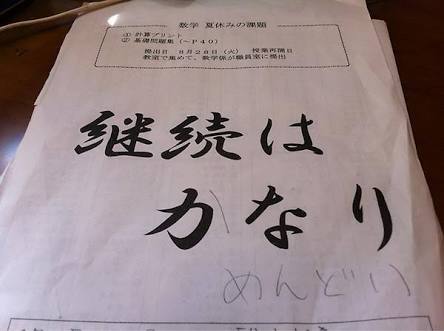 数学 夏休みの課題
① 計算プリント
② 基礎問題集（～P40）
提出日 8月28日（火） 授業再開日
教室で集めて、数学係が職員室に提出
継続は
かなり
めんどい